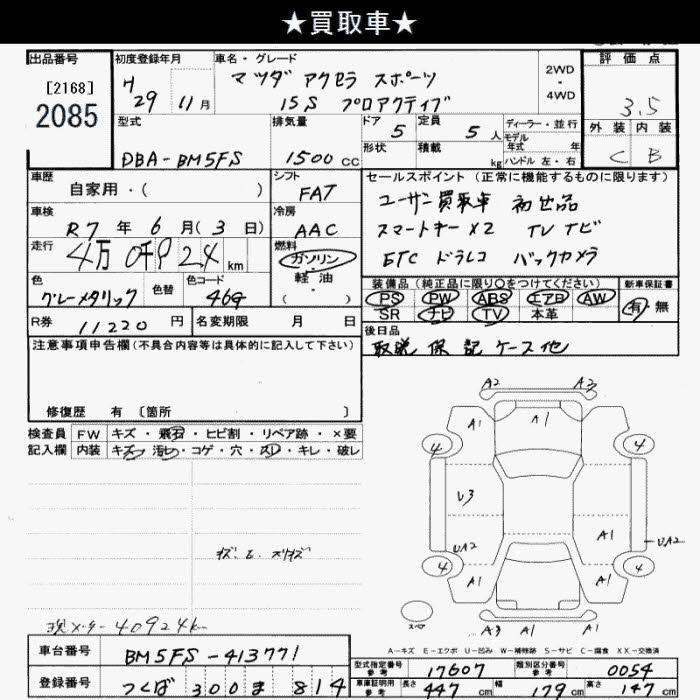 ★買取車★
出品番号
[2168]
2085
初度登録年月
H 29 11月
車名・グレード
マツダ アクセラ スポーツ
15S プロアクティブ
2WD
・
4WD
評価点
3.5
外装 内装
C B
型式
DBA-BM5FS
排気量
1500cc
ドア 5
定員 5人
形状
積載 kg
ディーラー・並行
モデル年式 年
ハンドル 左・右
車歴
自家用・( )
シフト
FAT
車検
R7年 6月(3日)
冷房
AAC
走行
4万 0千9 24 km
燃料
ガソリン
軽油
( )
色
グレーメタリック
色替
色コード
46G
R券 11220円
名変期限 月 日
セールスポイント(正常に機能するものに限ります)
ユーザー買取車 初出品
スマートキーX2 TVナビ
ETC ドラレコ バックカメラ
装備品(純正品に限り○をつけてください)
PS PW ABS エアB AW
SR ナビ TV 本革
新車保証書
有・無
後日品
取説 保 記 ケース他
注意事項申告欄(不具合内容等は具体的に記入して下さい)
修復歴 有 〔箇所 〕
検査員
記入欄
FW キズ・飛石・ヒビ割・リペア跡・×要
内装 キズ・汚れ・コゲ・穴・スレ・キレ・破レ
現メーター 40924k
A2 A3
A1 A1
4 4
U3
A1
UA2 UA2
4 4
A1 A1
スペア
A3 A1
A-キズ E-エクボ U-凹み W-補修跡 S-サビ C-腐食 XX-交換済
車台番号
BM5FS-413771
登録番号
つくば 300 ま 814
型式指定番号
参考
17607
類別区分番号
参考
0054
車庫証明用
参考
長さ 447cm
幅 179cm
高さ 147cm